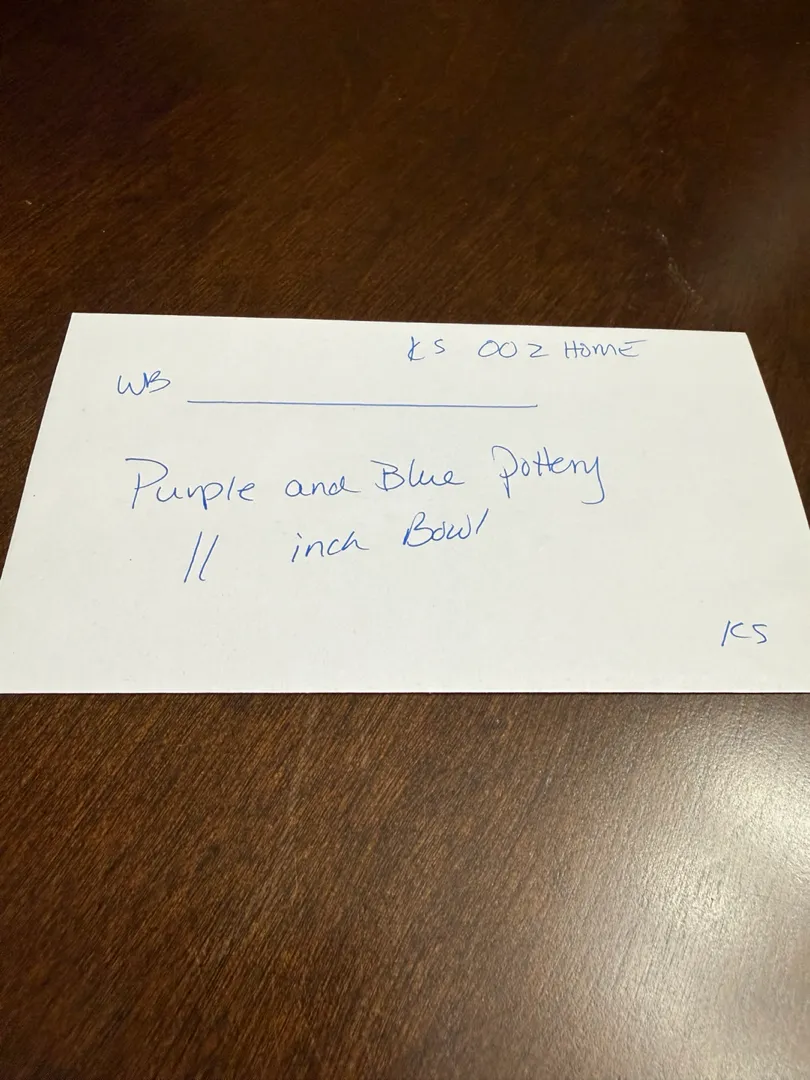 KS 002 HOME
WB
Purple and Blue Pottery
11 inch Bowl
KS